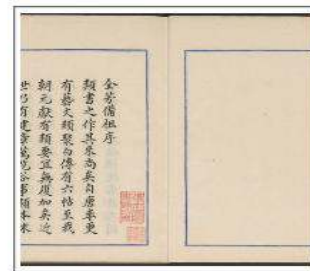 全芳備祖序
類書之作其來尚矣自唐率更
有藝文類聚白傅有六帖至我
朝元獻有類要宜無復加矣近